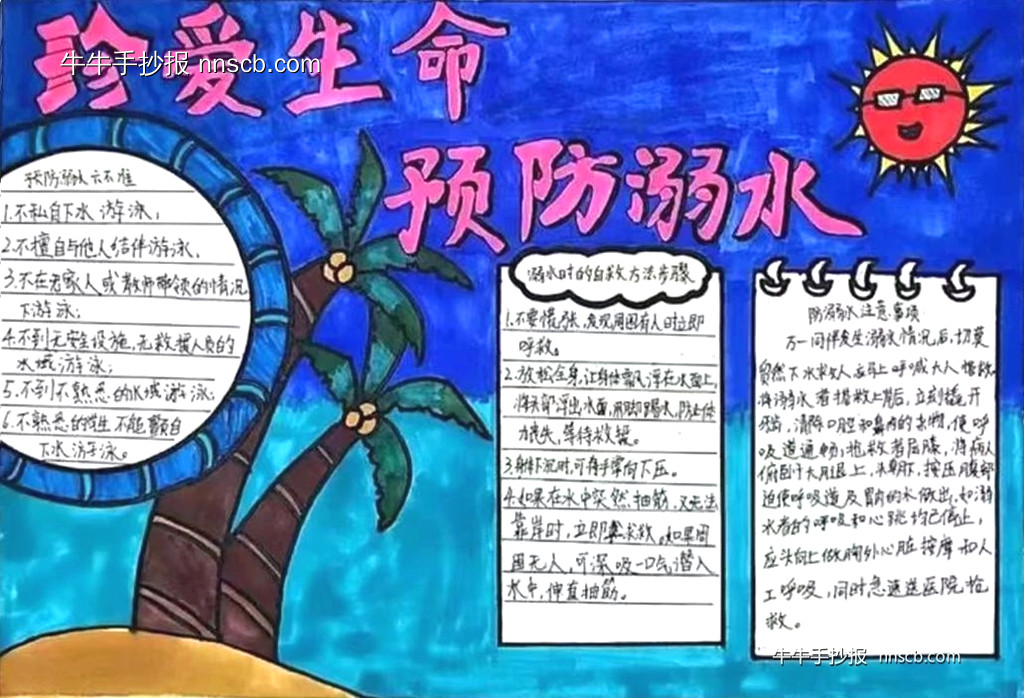 珍爱生命
牛牛手抄报 nnscb.com
预防溺水
预防溺水六不准
1.不私自下水游泳;
2.不擅自与他人结伴游泳.
3.不在无家人或教师带领的情况
下游泳;
4.不到无安全设施,无救援人员的
水域游泳;
5.不到不熟悉的水域游泳;
6.不熟悉的学生不能擅自
下水游泳。
溺水时的自救方法步骤
1.不要慌张,发现周围有人时立即
呼救。
2.放松全身,让身体飘浮在水面上,
将头部浮出水面,用脚踢水,防止体
力丧失,等待救援。
3.身体下沉时,可将手掌向下压。
4.如果在水中突然抽筋,又无法
靠岸时,立即求救。如果周
围无人,可深吸一口气潜入
水中,伸直抽筋。
防溺水注意事项
万一同伴发生溺水情况后,切莫
贸然下水救人应马上呼喊大人
将溺水者救上岸后,立刻撬开
清除口腔和鼻内的,使呼
吸道通畅;抢救者屈膝,将病人
俯到大月退上,头朝下,按压腹部
迫使呼吸道及胃的水出,如溺
水者的呼吸和心跳均已停止,
应头向上做胸外心脏按摩和人
工呼吸,同时急速送医院抢
救。
牛牛手抄报 nnscb.com